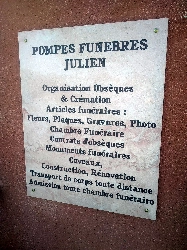 POMPES FUNEBRES
JULIEN
Organisation Obsèques
& Crémation
Articles funéraires :
Fleurs, Plaques, Gravures, Photo
Chambre Funéraire
Contrats d'obsèques
Monuments funéraires
Caveaux,
Construction, Rénovation
Transport de corps toute distance
Admission toute chambre funéraire